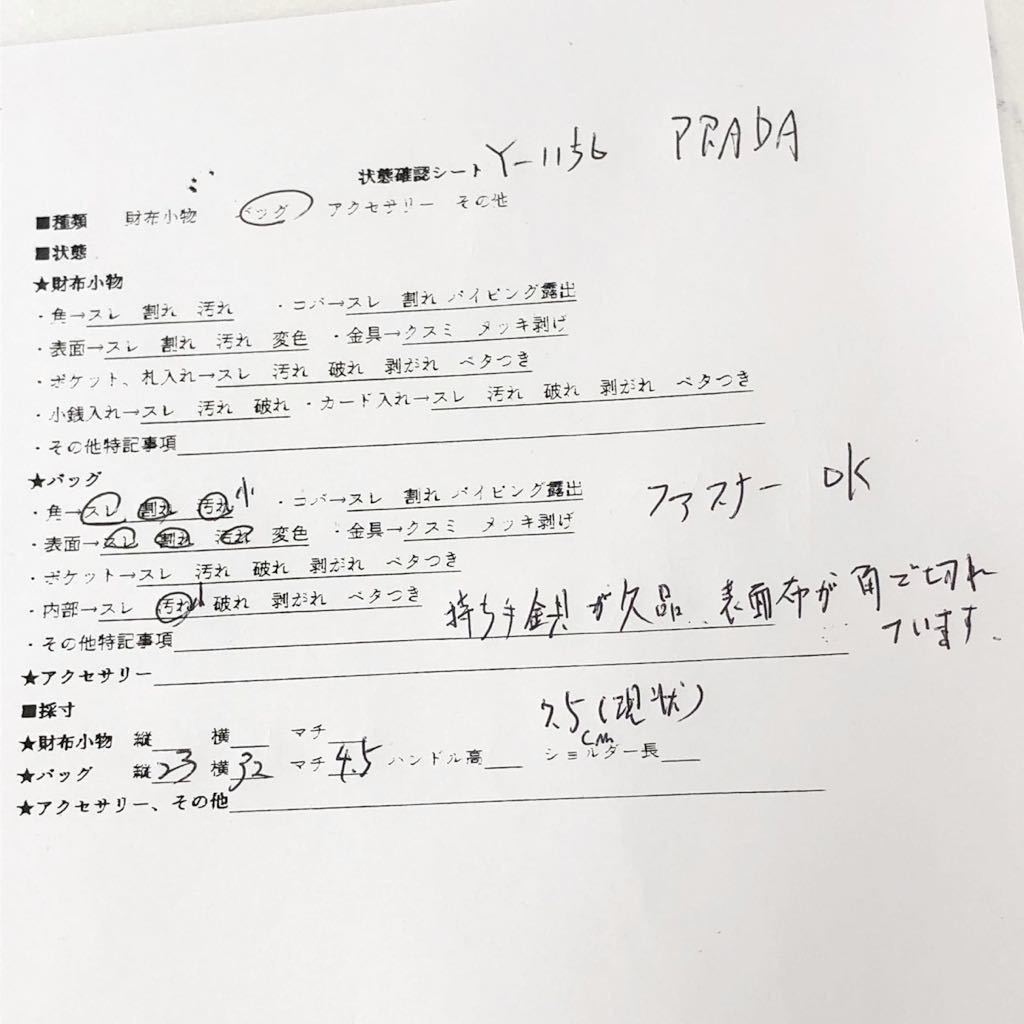 状態確認シート Y-1156 PRADA
■種類 財布小物 バッグ アクセサリー その他
■状態
★財布小物
・角→スレ 割れ 汚れ ・コバ→スレ 割れ パイピング露出
・表面→スレ 割れ 汚れ 変色 ・金具→クスミ メッキ剥げ
・ポケット、札入れ→スレ 汚れ 破れ 剥がれ ベタつき
・小銭入れ→スレ 汚れ 破れ ・カード入れ→スレ 汚れ 破れ 剥がれ ベタつき
・その他特記事項
★バッグ
・角→スレ 割れ 汚れ 小 ・コバ→スレ 割れ パイピング露出
ファスナー OK
・表面→スレ 割れ 汚れ 変色 ・金具→クスミ メッキ剥げ
・ポケット→スレ 汚れ 破れ 剥がれ ベタつき
・内部→スレ 汚れ 小 破れ 剥がれ ベタつき
持ち手金具が欠品、表面布が角で切れ
ています。
・その他特記事項
★アクセサリー
■採寸
7.5(現状)
cm
★財布小物 縦 横 マチ
★バッグ 縦23 横32 マチ4.5 ハンドル高 ショルダー長
★アクセサリー、その他